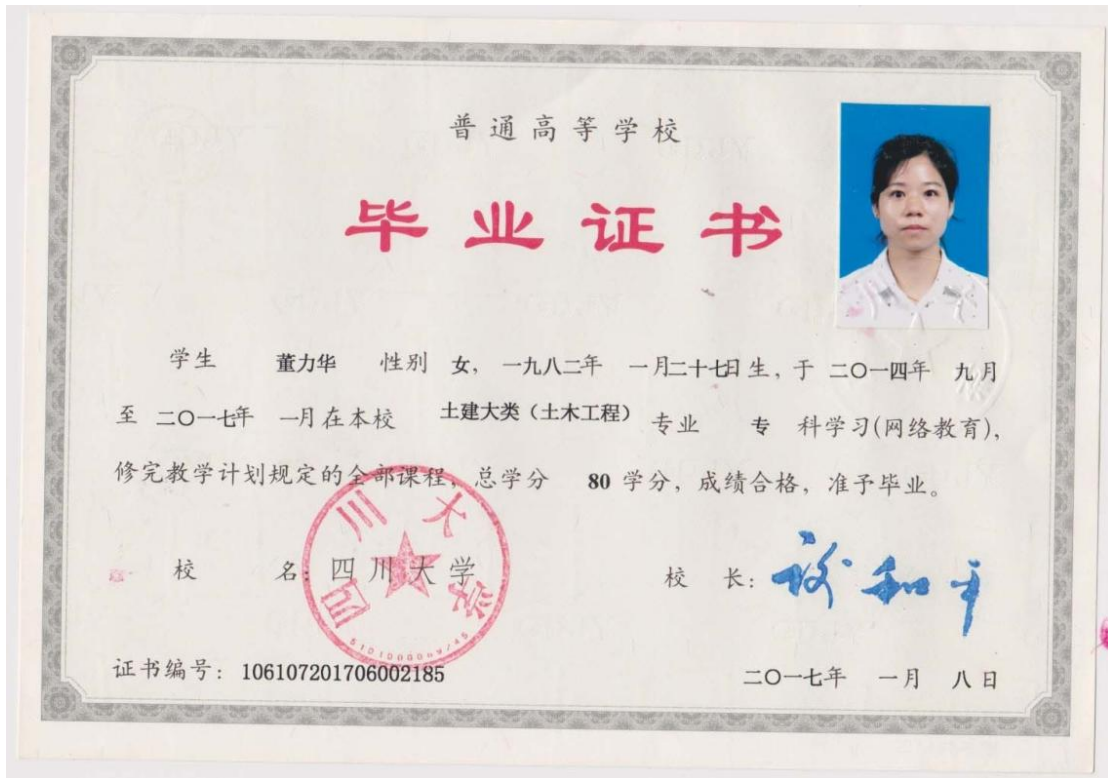 普通高等学校
毕业证书
学生 董力华 性别 女，一九八二年 一月二十七日生，于 二〇一四年 九月
至 二〇一七年 一月在本校 土建大类（土木工程） 专业 专 科学习(网络教育),
修完教学计划规定的全部课程，总学分 80 学分，成绩合格，准予毕业。
校 名: 四川大学
四川大学
校 长: 谢和平
证书编号: 106107201706002185
二〇一七年 一月 八日